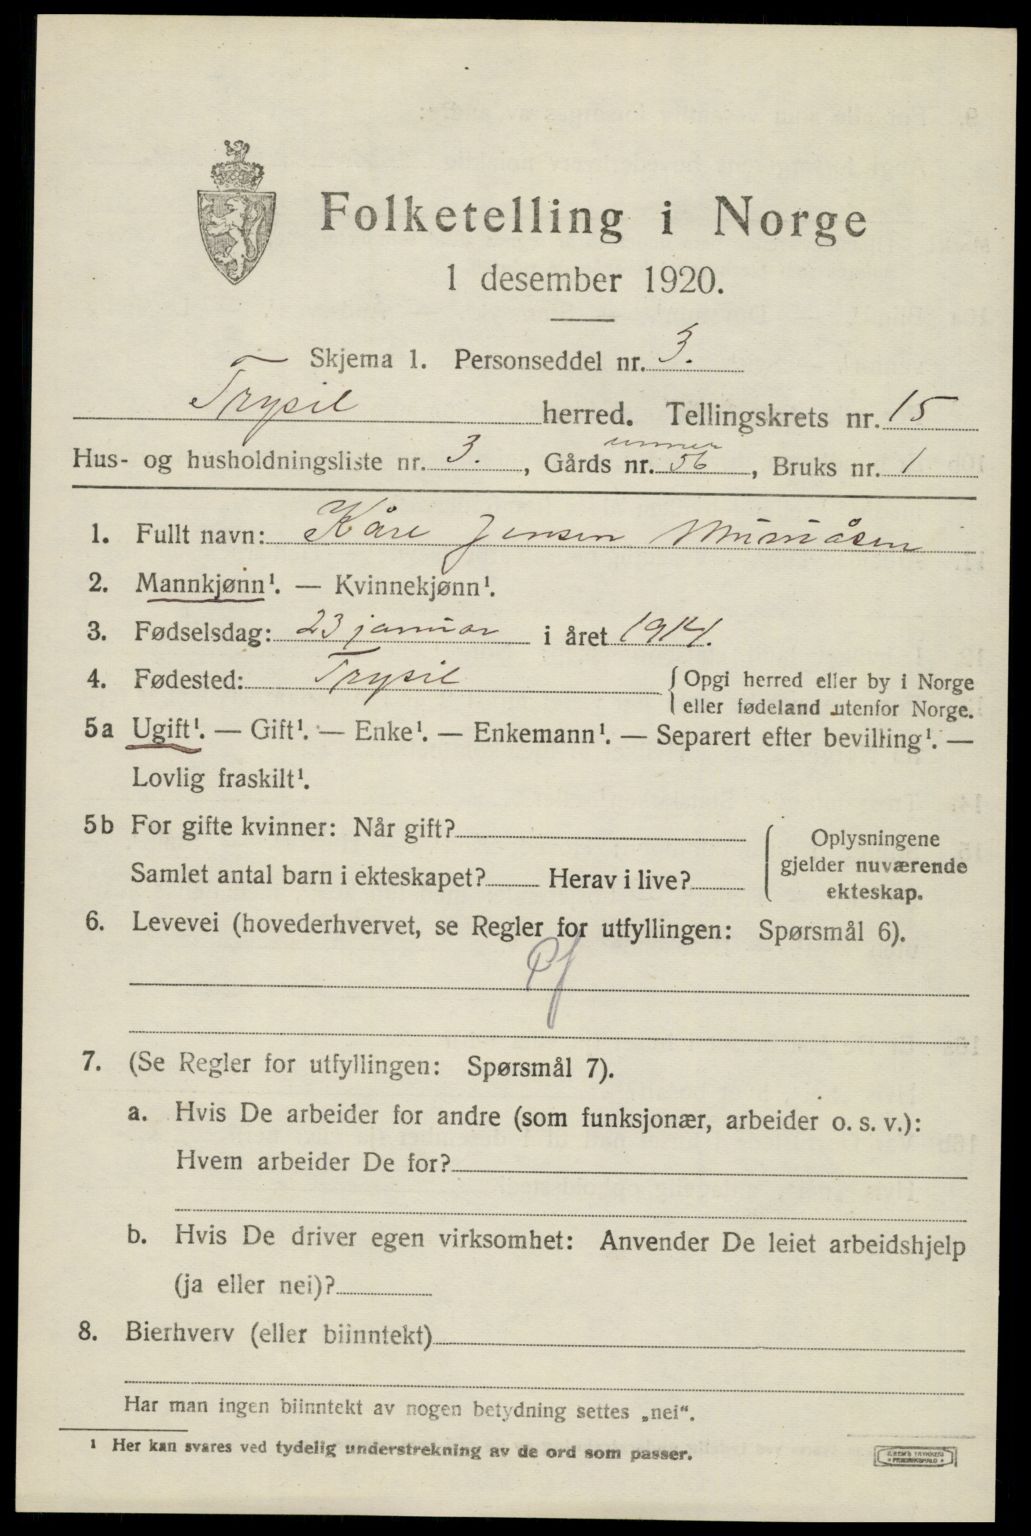 Folketelling i Norge
1 desember 1920.
Skjema 1. Personseddel nr. 3.
Trysil herred. Tellingskrets nr. 15
Hus- og husholdningsliste nr. 3., Gårds nr. 56, Bruks nr. 1
1. Fullt navn: Kåre Jensen
2. Mannkjønn¹. — Kvinnekjønn¹.
3. Fødselsdag: 23 januar i året 1914.
4. Fødested: Trysil {Opgi herred eller by i Norge
eller fødeland utenfor Norge.
5a Ugift¹. — Gift¹. — Enke¹. — Enkemann¹. — Separert efter bevilling¹. —
Lovlig fraskilt¹.
5b For gifte kvinner: Når gift?
Samlet antal barn i ekteskapet? Herav i live?
{Oplysningene
gjelder nuværende
ekteskap.
6. Levevei (hovederhvervet, se Regler for utfyllingen: Spørsmål 6).
7. (Se Regler for utfyllingen: Spørsmål 7).
a. Hvis De arbeider for andre (som funksjonær, arbeider o. s. v.):
Hvem arbeider De for?
b. Hvis De driver egen virksomhet: Anvender De leiet arbeidshjelp
(ja eller nei)?
8. Bierhverv (eller biinntekt)
Har man ingen biinntekt av nogen betydning settes „nei“.
¹ Her kan svares ved tydelig understrekning av de ord som passer.